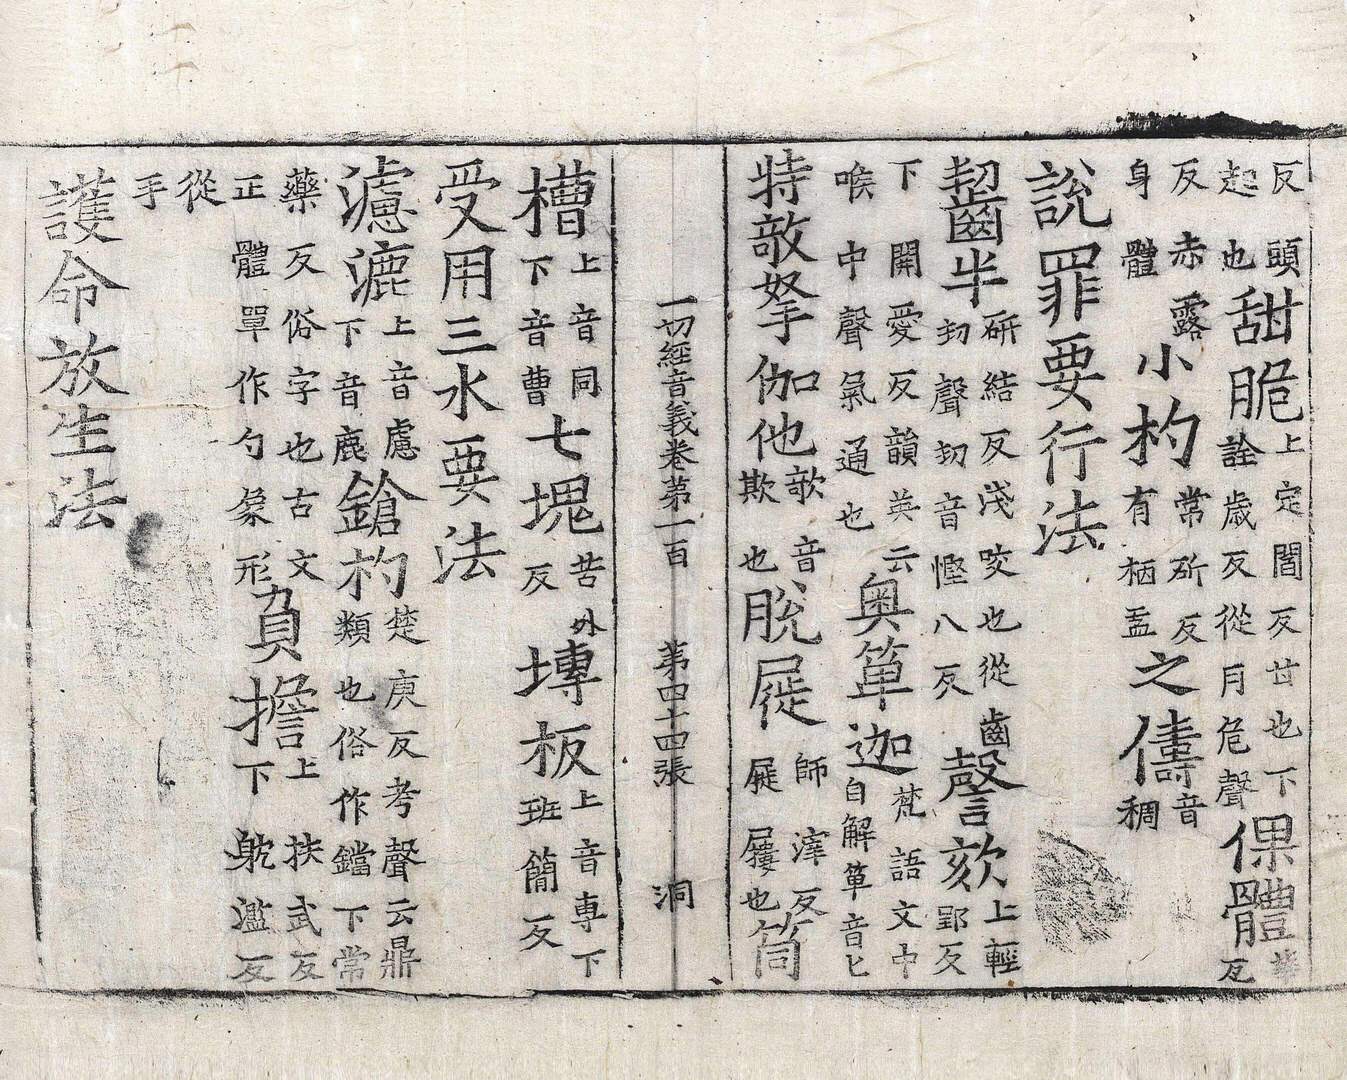 反頭起也甜脆上定閻反甘也下詮歲反從月危聲倮體華瓦
反赤露身體小杓常斫反有柄盂之儔音稠
說罪要行法
齧齒半研結反淺咬也從齒㓞聲㓞音慳八反謦欬上輕郢反
下開愛反韻英云喉中聲氣通也奧箄迦梵語文中自解箄音匕
特敧拏伽他欹音欺也脫屣師滓反屣屨也筒
一切經音義卷第一百 第四十四張 洞
槽上音同下音曹七塊苦外反塼板上音專下班簡反
受用三水要法
濾漉上音慮下音鹿鎗杓楚庚反考聲云鼎類也俗作鐺下常
藥反俗字也古文正體單作勺象形負擔上扶武反下躭濫反
從手
護命放生法